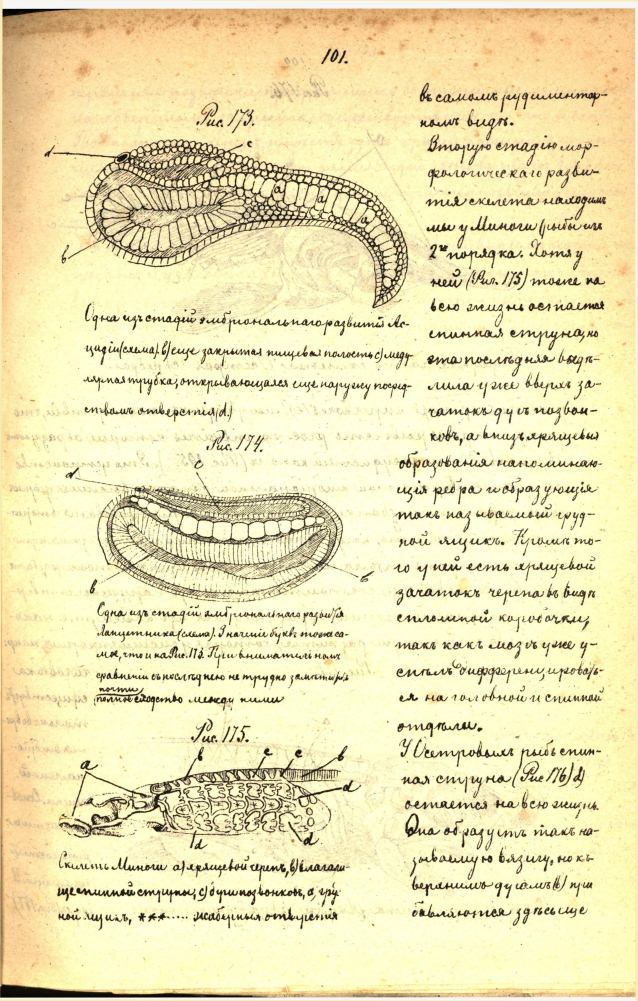 101.
Рис. 173.
d
c
a
a
a
b
Одна изъ стадій эмбріональнаго развитія Ас-
цидіи (схема). b) еще закрытая пищевая полость c) меду-
лярная трубка, открывающаяся еще наружу посред-
ствомъ отверстія (d.)
Рис. 174.
c
d
b
b
Одна изъ стадій эмбріональнаго развитія
Ланцетника (схема). Значеніе буквъ тоже са-
мое, что и на Рис. 173. При внимательномъ
сравненіи съ послѣднею не трудно замѣтить
почти
полное сходство между ними
Рис. 175.
a
b
c
c
b
d
d
d
Скелетъ Миноги a) хрящевой черепъ, b) влагали-
ще спинной струны, c) дуги позвонковъ, d, гру-
ной ящикъ, *** ..... жаберныя отверстія
въ самомъ рудиментар-
номъ видѣ.
Вторую стадію мор-
фологическаго разви-
тія скелета находимъ
мы у Миноги (рыбы изъ
2го порядка. Хотя у
ней (Рис. 175) тоже на
всю жизнь остается
спинная струна, но
эта послѣдняя выдѣ-
лила уже вверхъ за-
чатокъ дугъ позвон-
ковъ, а внизъ хрящевыя
образованія напоминаю-
щія ребра и образующія
такъ называемый груд-
ной ящикъ. Кромѣ то-
го у ней есть хрящевой
зачатокъ черепа въ видѣ
сплошной коробочки,
такъ какъ мозгъ уже у-
спѣлъ дифференцировать-
ся на головной и спинной
отдѣлы.
У Осетровыхъ рыбъ спин-
ная струна (Рис 176) d)
остается на всю жизнь.
Она образуетъ такъ на-
зываемую вязигу, но къ
верхнимъ дугамъ (b) при
бавляются здѣсь еще